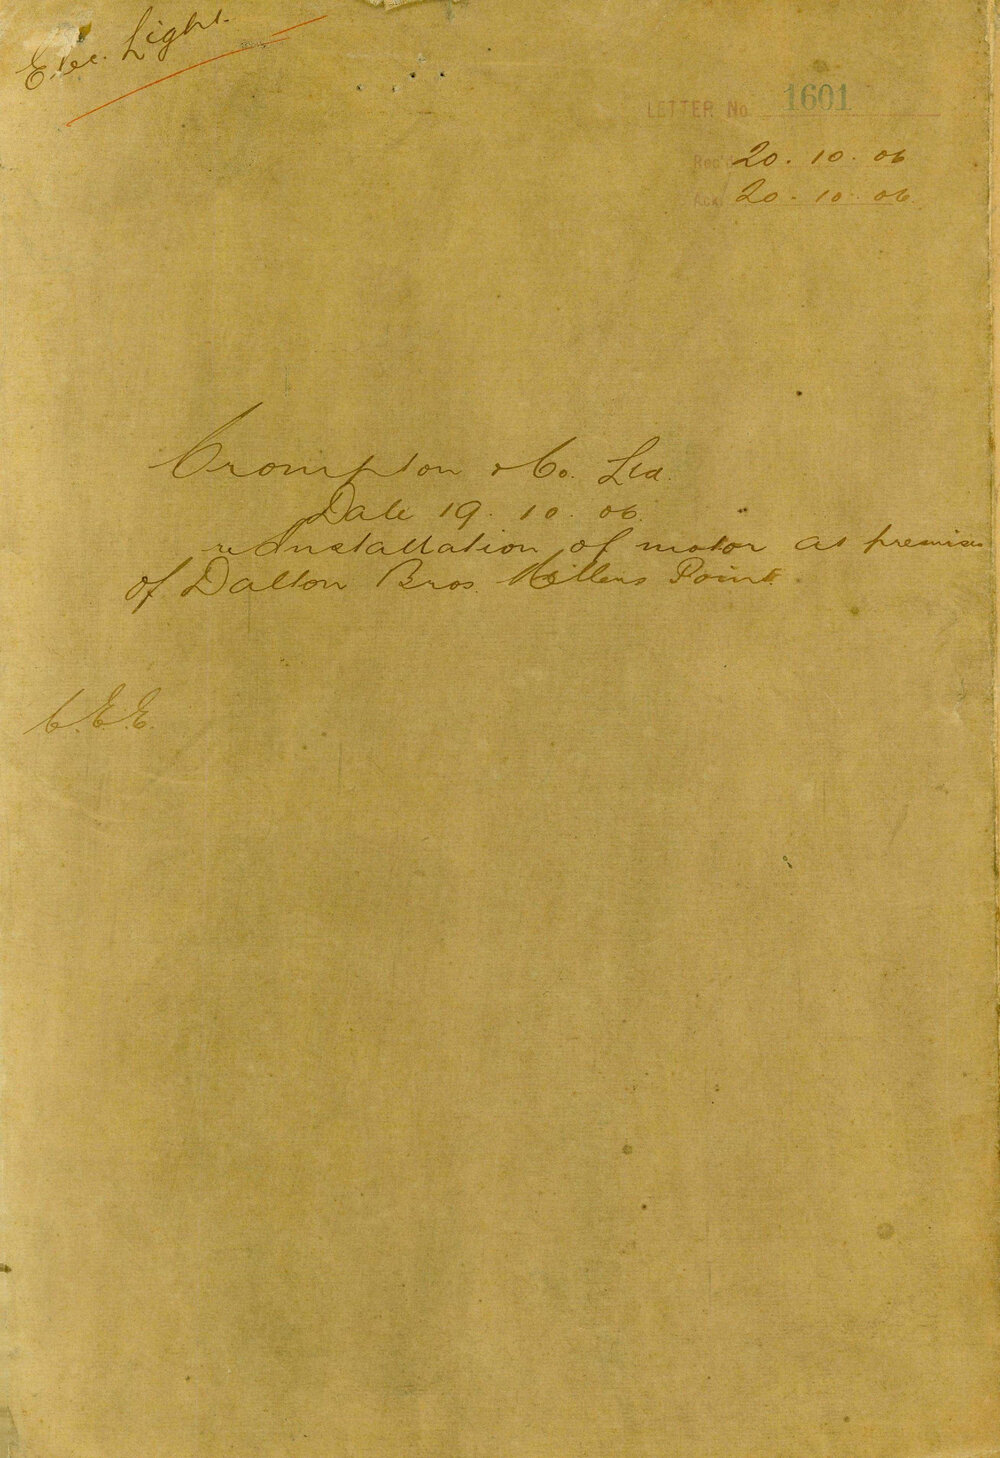 Elec. Light.
LETTER No 1601
Rec'd 20. 10. 06
Reg 20. 10. 06
Crompton & Co. Ltd.
Date 19. 10. 06.
re Installation of motor at premises
of Dalton Bros. Millers Point.
C.E.E.